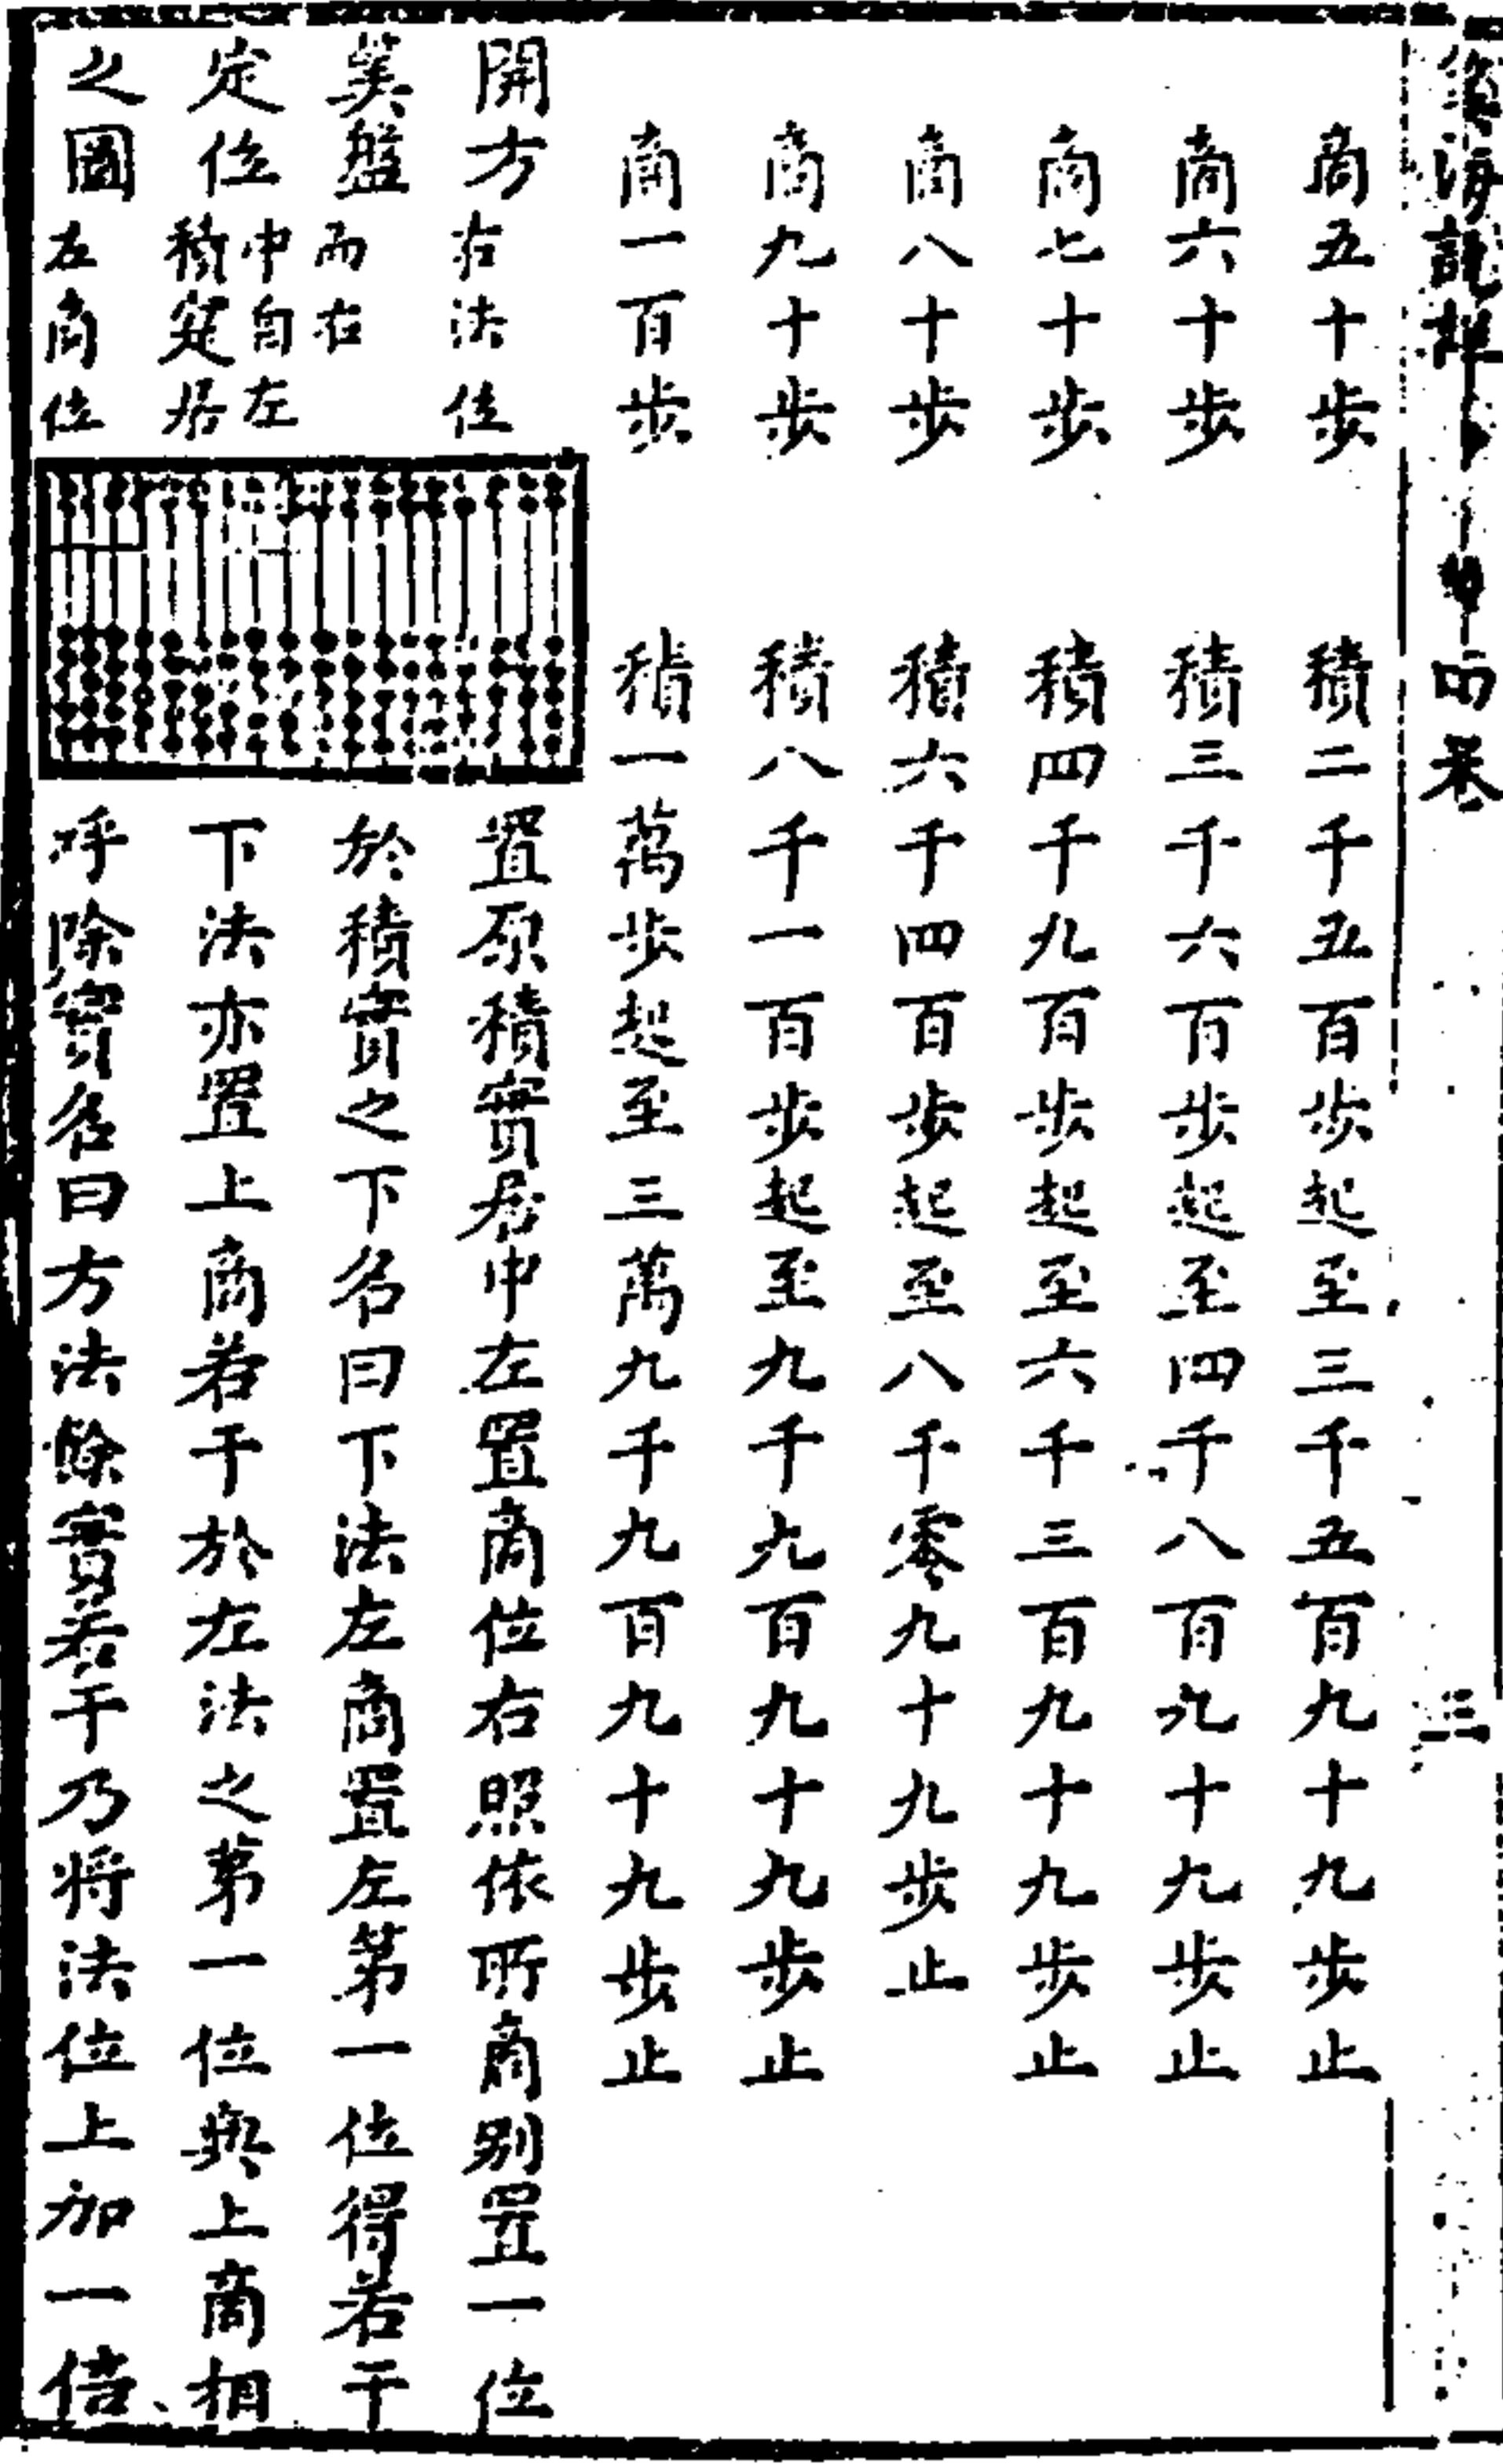 算海説詳 四卷 三
商五十步 積二千五百步起至三千五百九十九步止
商六十步 積三千六百步起至四千八百九十九步止
商七十步 積四千九百步起至六千三百九十九步止
商八十步 積六千四百步起至八千零九十九步止
商九十步 積八千一百步起至九千九百九十九步止
商一百步 積一萬步起至三萬九千九百九十九步止
開方 右法位 置原積實居中左置商位右照依所商別置一位
筭盤 而右 於積實之下名曰下法左商置左第一位得若干
定位 中自左 積定居 下法亦置上商若干於左法之第一位與上商相
之圖 左商位 呼除實名曰方法餘實若干乃将法位上加一倍